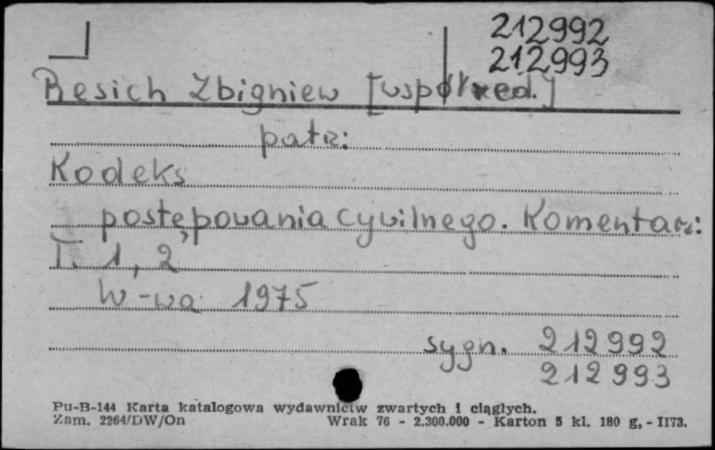 212992
212993
Resich Zbigniew [współred.]
patrz:
Kodeks
postępowania cywilnego. Komentarz:
T. 1, 2
W-wa 1975
sygn. 212992
212993
Pu-B-144 Karta katalogowa wydawnictw zwartych i ciągłych.
Zam. 2264/DW/On Wrak 76 - 2.300.000 - Karton 5 kl. 180 g, - II73.